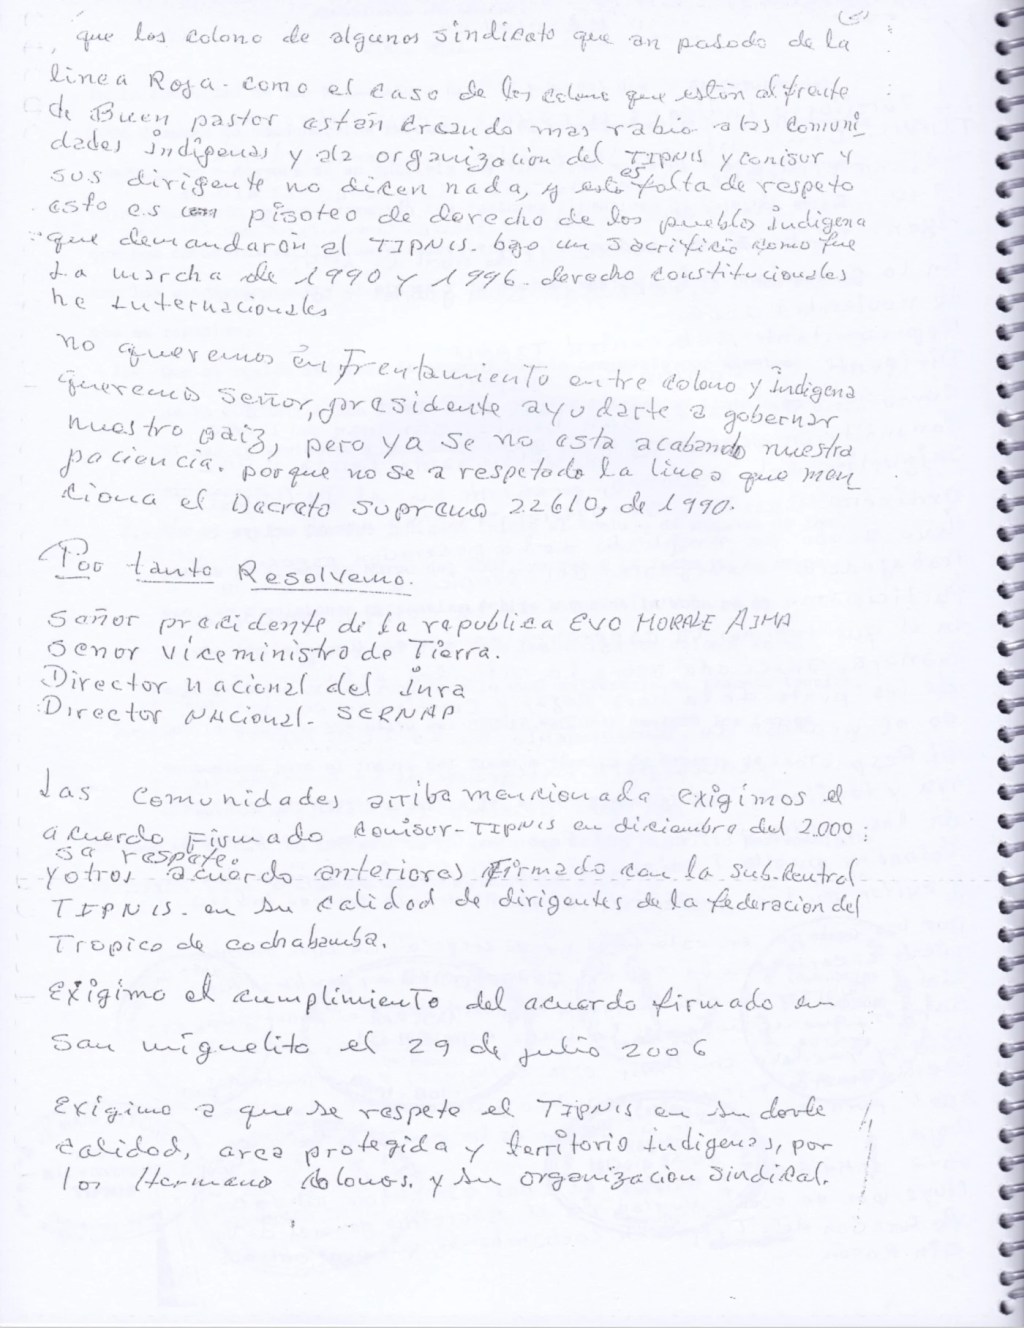 que los colono de algunos sindicato que an pasado de la
linea Roja. como el caso de los colono que están al frente
de Buen pastor están creando mas rabia a las comuni
dades indígenas y ala organización del TIPNIS y conisur y
sus dirigente no dicen nada, y esto es falta de respeto
esto es un pisoteo de derecho de los pueblos indigena
que demandarón el TIPNIS. bajo un sacrificio como fue
La marcha de 1990 y 1996. derecho constitucionales
he Internacionales
no queremos en Frentamiento entre colono y indigena
queremos señor, presidente ayudarte a gobernar
nuestro paiz, pero ya se no esta acabando nuestra
paciencia. porque no se a respetado la linea que men
ciona el Decreto supremo 22610, de 1990.
Por tanto Resolvemo.
señor precidente de la republica EVO MORALE AIMA
senor viceministro de Tierra.
Director nacional del inra
Director NAcional. SERNAP
Las comunidades arriba mencionada exigimos el
acuerdo Firmado conisur-TIPNIS en diciembre del 2.000:
se respete.
y otros acuerdo anteriores firmado con la sub.central
TIPNIS. en su calidad de dirigentes de la federacion del
Tropico de cochabamba.
Exigimo el cumplimiento del acuerdo firmado en
San miguelito el 29 de julio 2006
Exigimo a que se respete el TIPNIS en su doble
calidad, area protegida y territorio indigenas, por
los Hermano colonos. y su organización sindical.